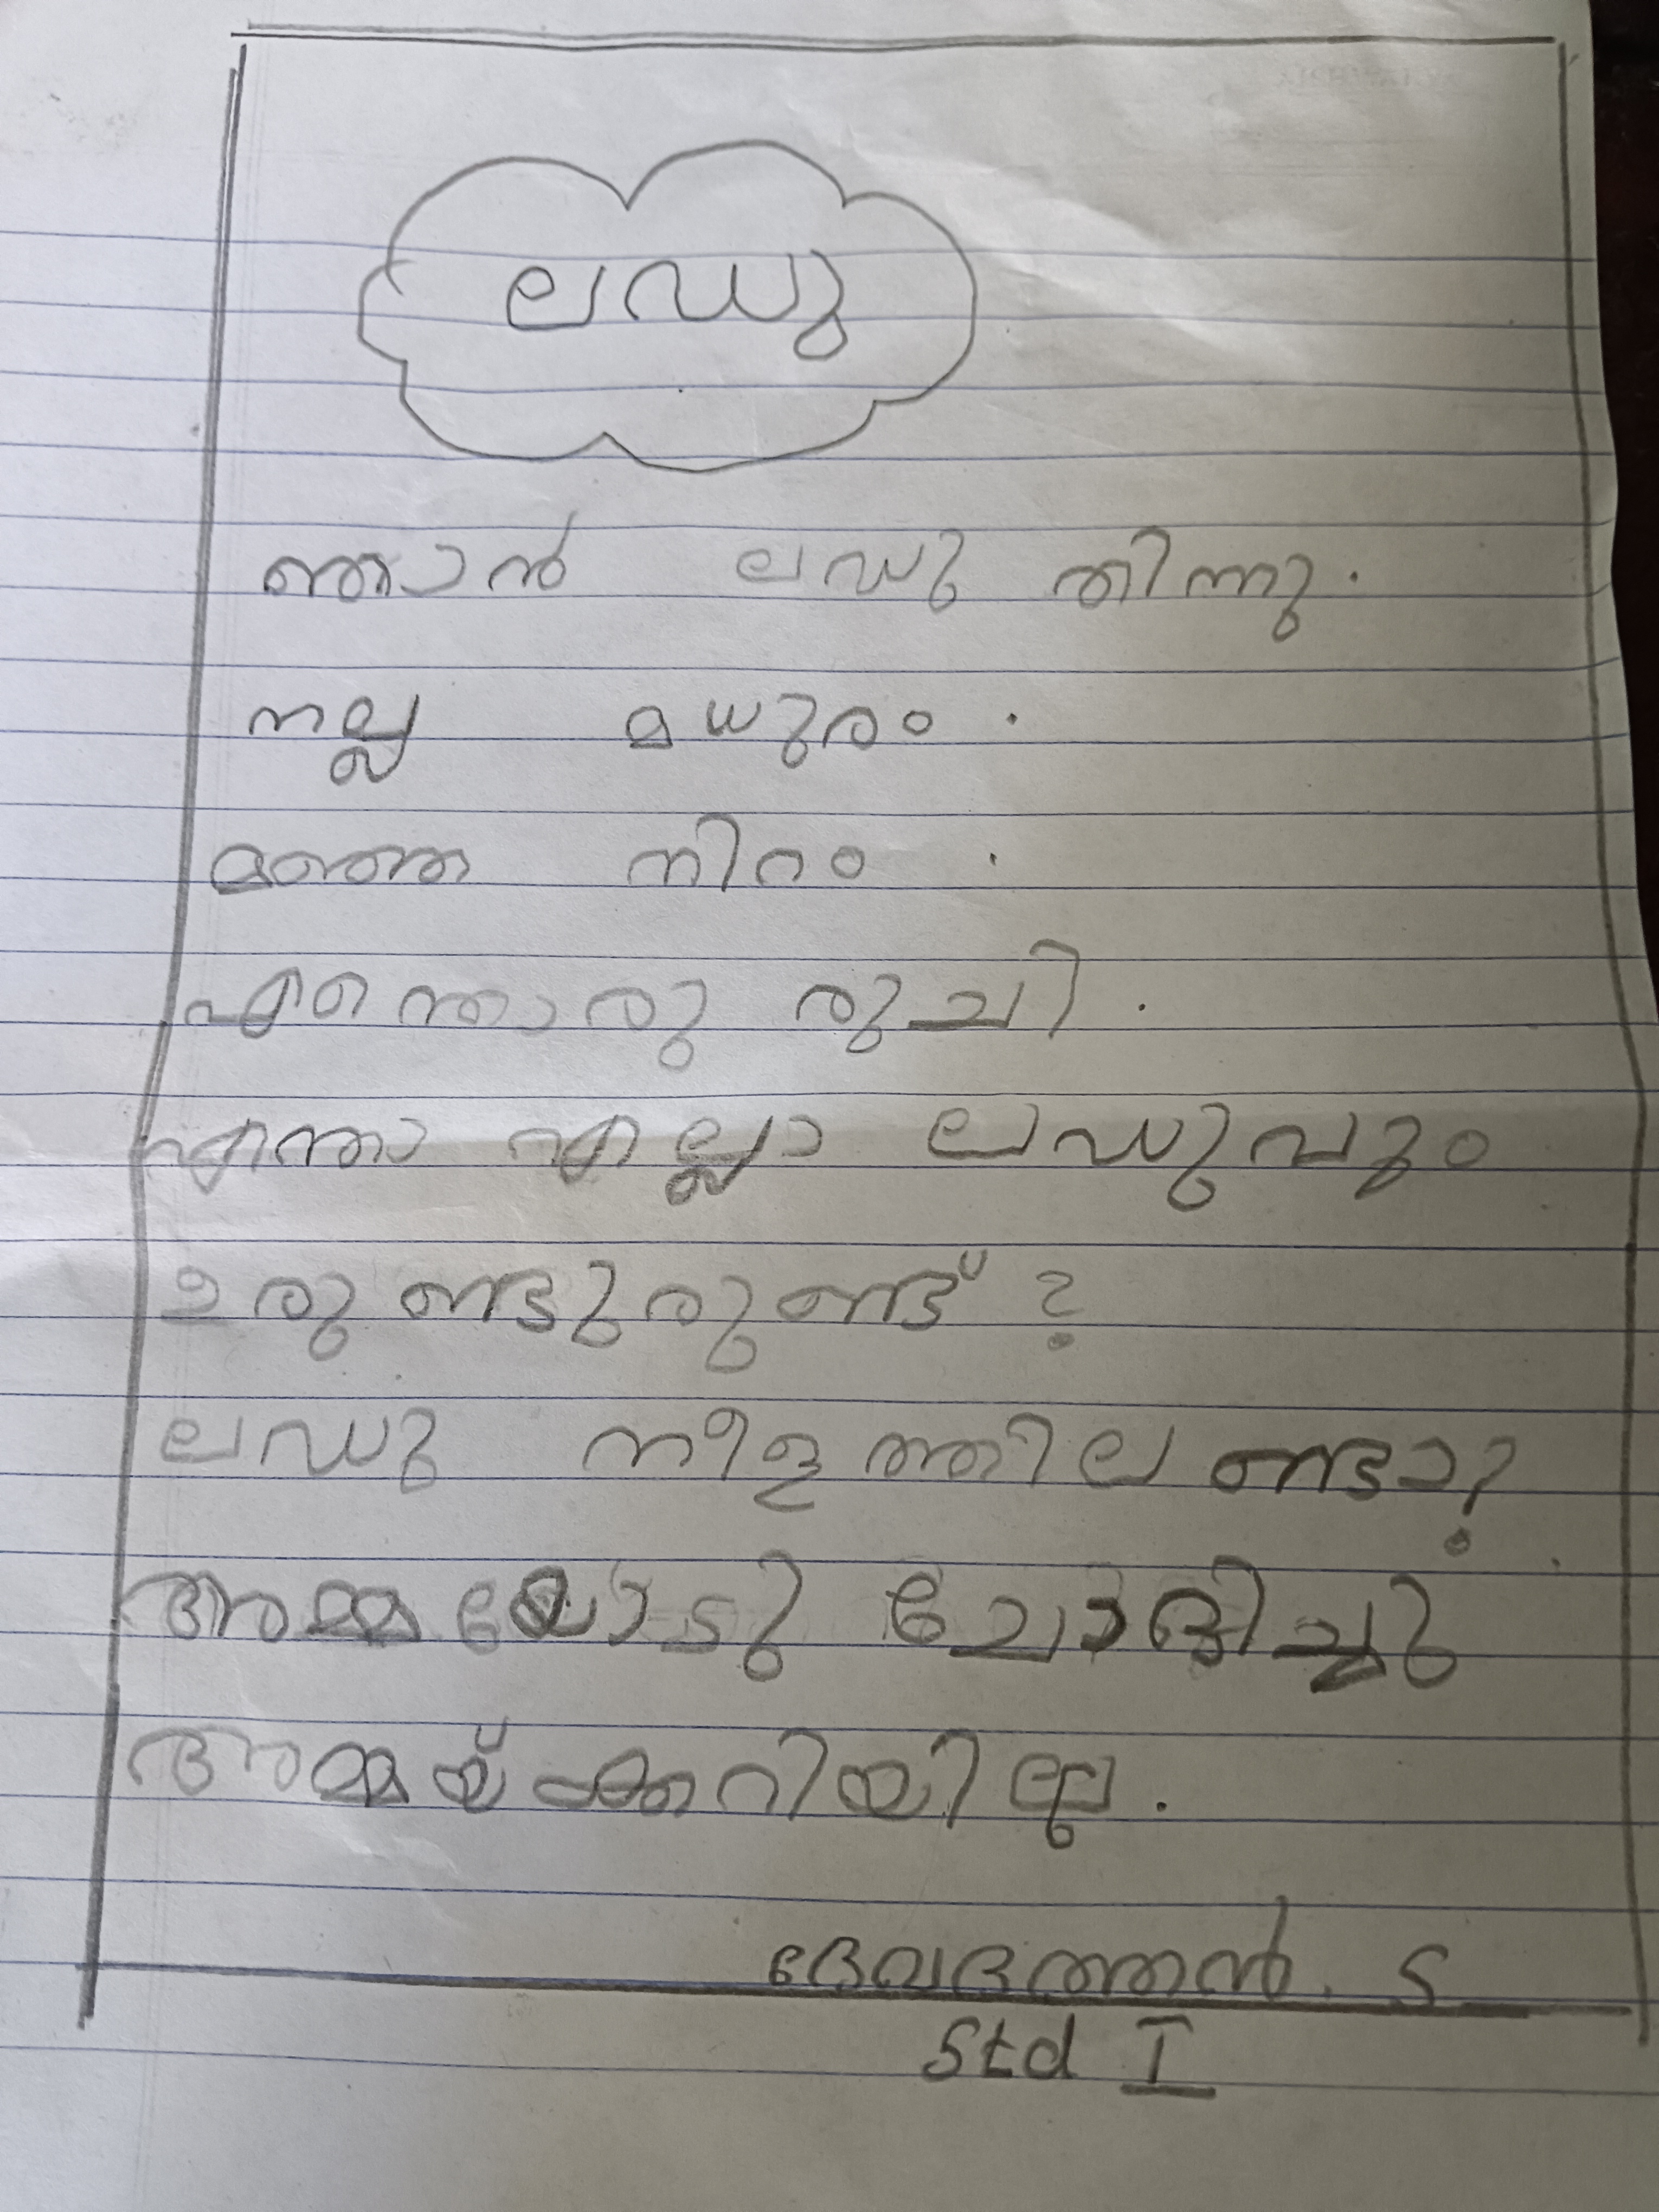 ലഡു
ഞാൻ ലഡു തിന്നു.
നല്ല മധുരം.
മഞ്ഞ നിറം.
എന്തൊരു രുചി.
എന്താ എല്ലാ ലഡുവും
ഉരുണ്ടുരുണ്ട്?
ലഡു നീളത്തിലണ്ടാ?
അമ്മയോടു ചോദിച്ചു
അമ്മയ്ക്കറിയില്ല.
ദേവദത്തൻ. S
Std I